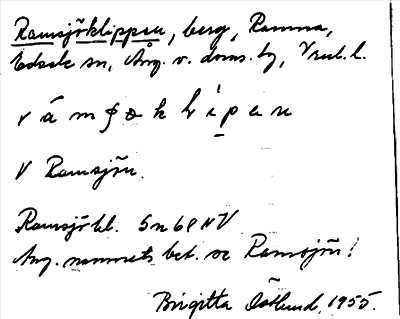 Ramsjöklippen, berg, Ramna,
Edsele sn, Ång. v. doms. by, Vrul. l.
V Ramsjön.
Ramsjökl. Sn 68 NV
Ang. namnets bet. se Ramsjön!
Birgitta Östlund, 1955.